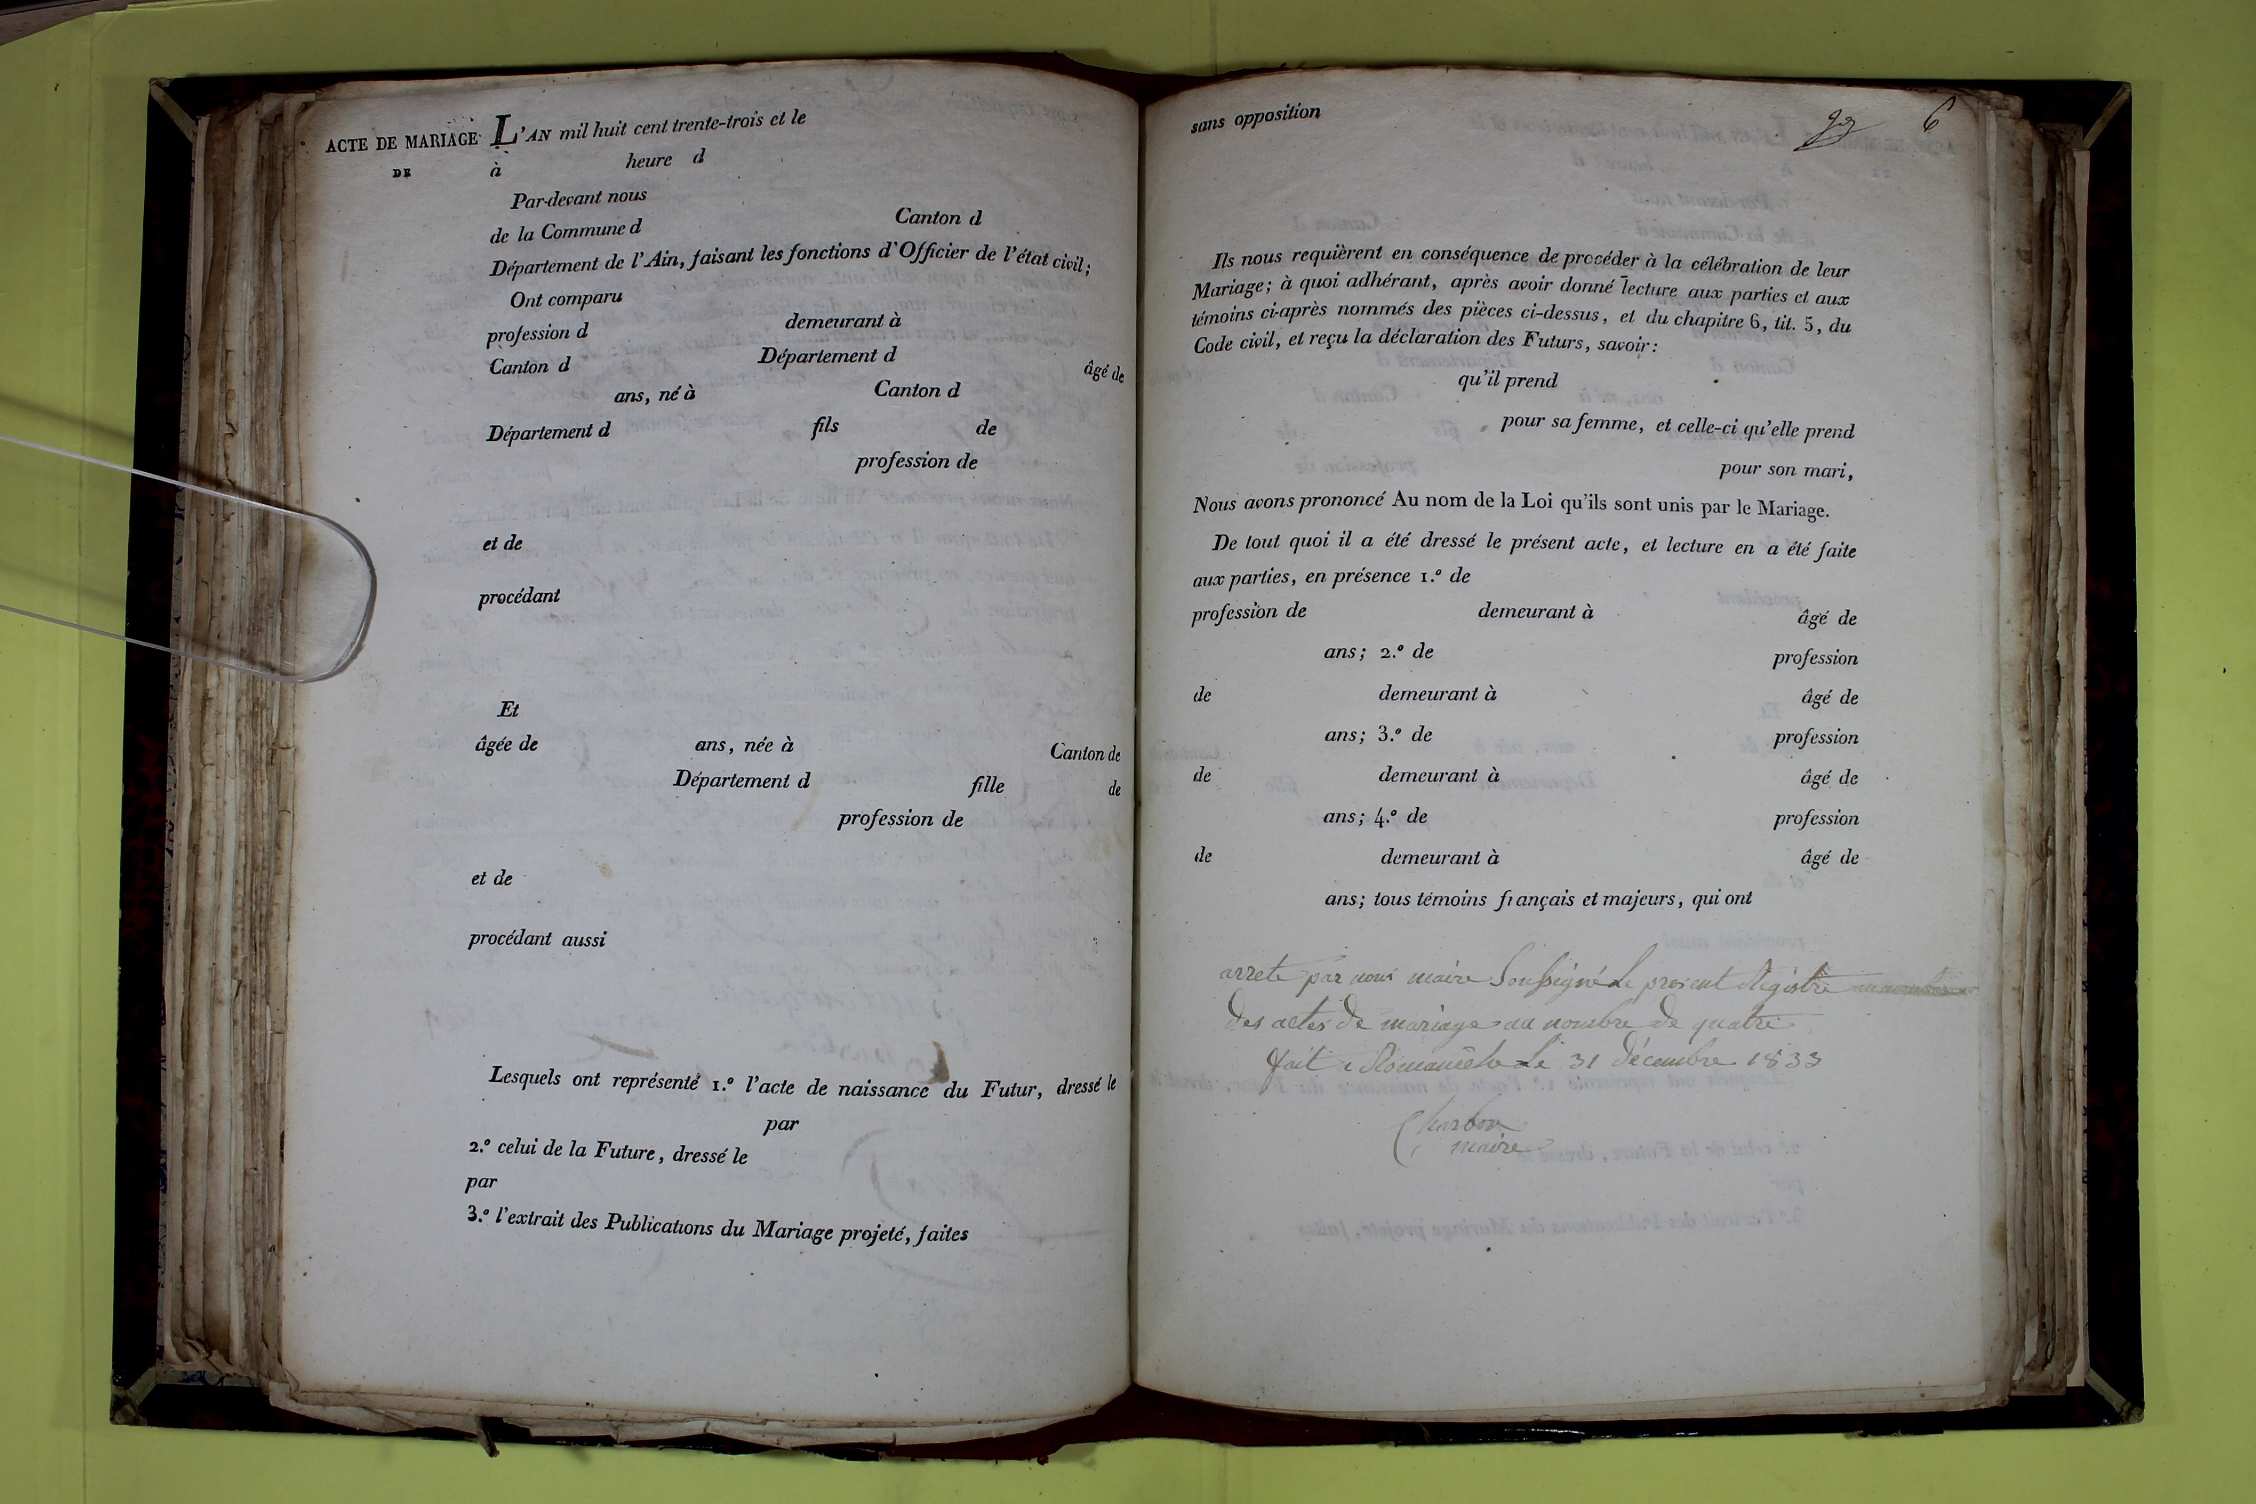 ACTE DE MARIAGE
DE
L'AN mil huit cent trente-trois et le
à heure d
Par-devant nous
de la Commune d Canton d
Département de l'Ain, faisant les fonctions d'Officier de l'état civil;
Ont comparu
profession d demeurant à
Canton d Département d âgé de
ans, né à Canton d
Département d fils de
profession de
et de
procédant
Et
âgée de ans, née à Canton de
Département d fille de
profession de
et de
procédant aussi
Lesquels ont représenté 1.º l'acte de naissance du Futur, dressé le
par
2.º celui de la Future, dressé le
par
3.º l'extrait des Publications du Mariage projeté, faites
6
sans opposition
Ils nous requièrent en conséquence de procéder à la célébration de leur
Mariage; à quoi adhérant, après avoir donné lecture aux parties et aux
témoins ci-après nommés des pièces ci-dessus, et du chapitre 6, tit. 5, du
Code civil, et reçu la déclaration des Futurs, savoir:
qu'il prend
pour sa femme, et celle-ci qu'elle prend
pour son mari,
Nous avons prononcé Au nom de la Loi qu'ils sont unis par le Mariage.
De tout quoi il a été dressé le présent acte, et lecture en a été faite
aux parties, en présence 1.º de
profession de demeurant à âgé de
ans; 2.º de profession
de demeurant à âgé de
ans; 3.º de profession
de demeurant à âgé de
ans; 4.º de profession
de demeurant à âgé de
ans; tous témoins français et majeurs, qui ont
arrete par nous maire Soussigné Le present Régistre
des actes de mariage au nombre de quatre
fait a Romanêche Le 31 décembre 1833
Charbon
maire